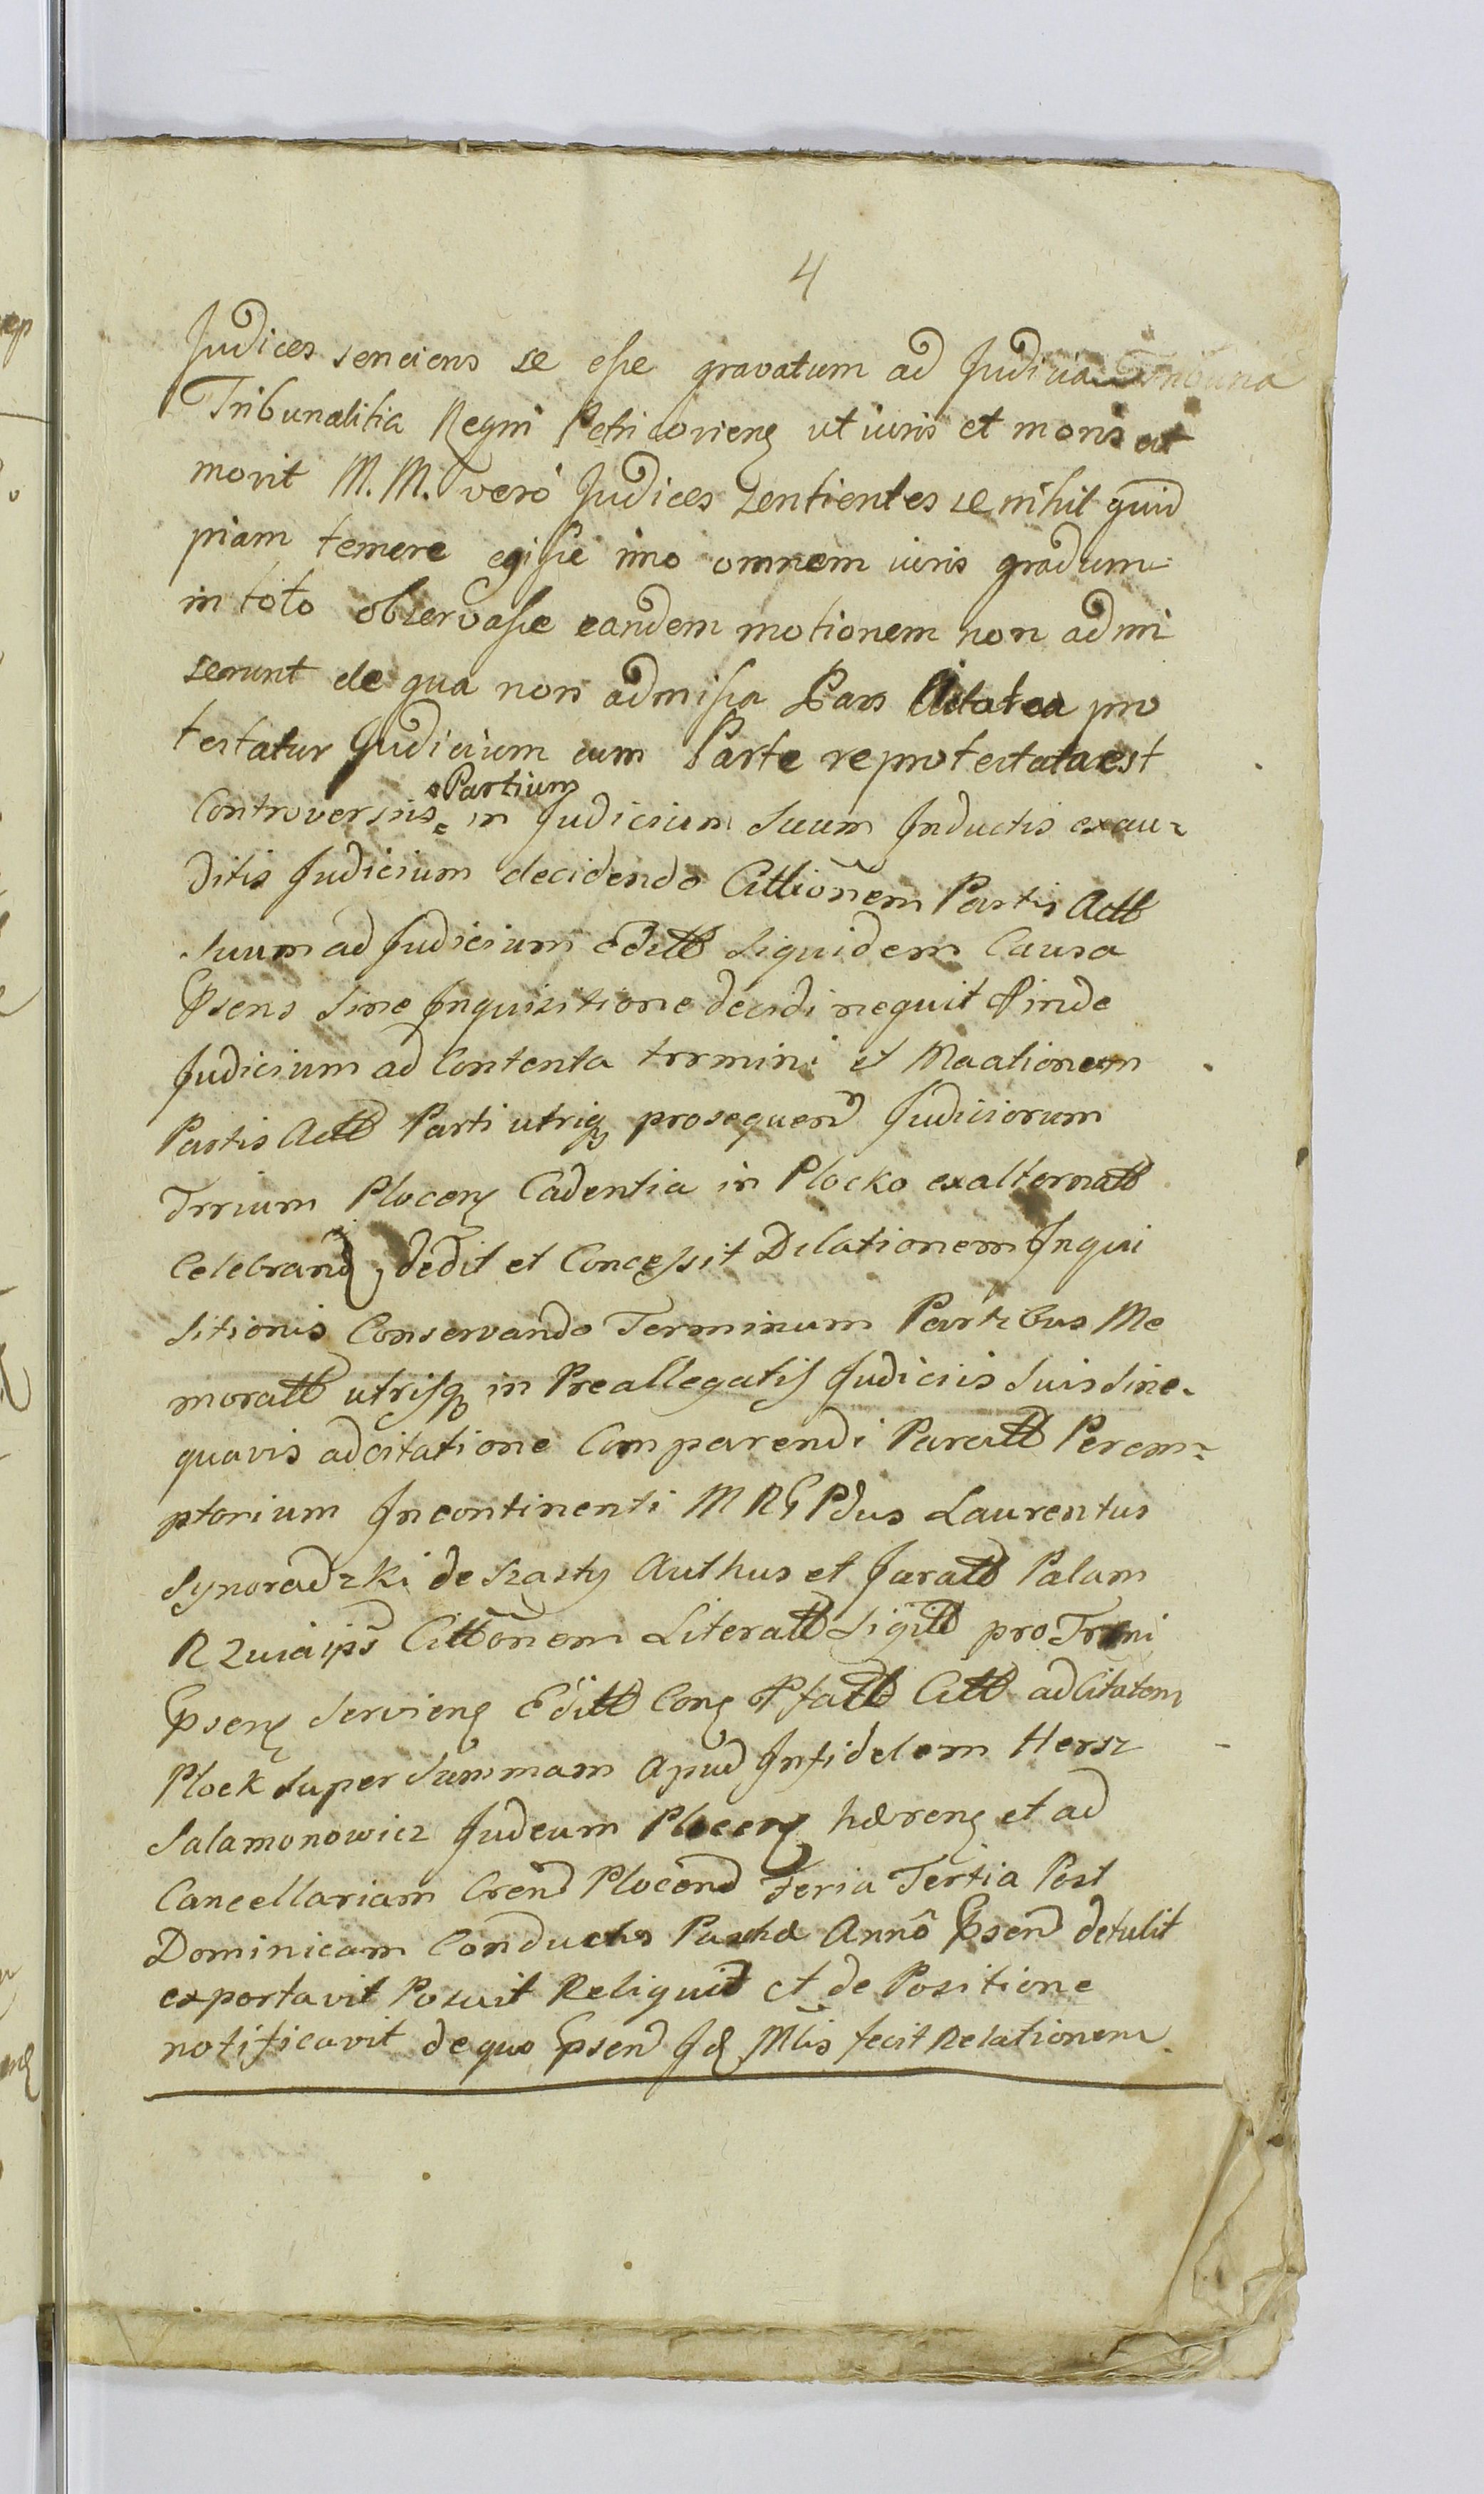 4
Judices senciens se esse gravatum ad Judicia Tribuna
Tribunalitia Regni Petricoviens ut iuris et moris est
movit M. M. verò Judices sentientes se nihil quid
piam temere egisse imo omnem iuris gradum
in toto observasse eandem motionem non admi
serunt de qua non admissa Pars Citatea pro
testatur Judicium cum Parte reprotestata est
Partium
Controversiis in Judicium Suum Inductis exau-
ditis Judicium decidendo Cittionem Partis Actt
Suum ad Judicium Editt Siquidem Causa
Psens Sine Inquisitione decidi nequit Pinde
Judicium ad Contenta trrmini et Naationem
Partis Actt Parti utriq prosequen Judiciorum
Trrium Plocen Cadentia in Plocko exalternatt
Celebrand, dedit et Concessit Dilationem Inqui
sitionis Conservando Terminum Partibus Me
moratt utrisq in Preallegatis Judiciis Suis Sine
quavis adcitatione Comparendi Paratt Perem-
ptorium Incontinenti M R G Pdus Laurentus
Synoradzki de Szasty Authus et Juratt Palam
R Zuiaips Cittonem Literatt Sigitt pro Trmi
Psens Serviens Editt Cons Pfatt Citt ad Citatem
Plock Super Summam apud Infidelem Hersz
Salamonowicz Judeum Plocens hærens et ad
Cancellariam Cren Plocen Feria Tertia Post
Dominicam Conductus Paschæ Annô Psen detulit
exportavit Posuit Reliquit et de Positione
notificavit de quo Psen Id Mlis fecit Relationem